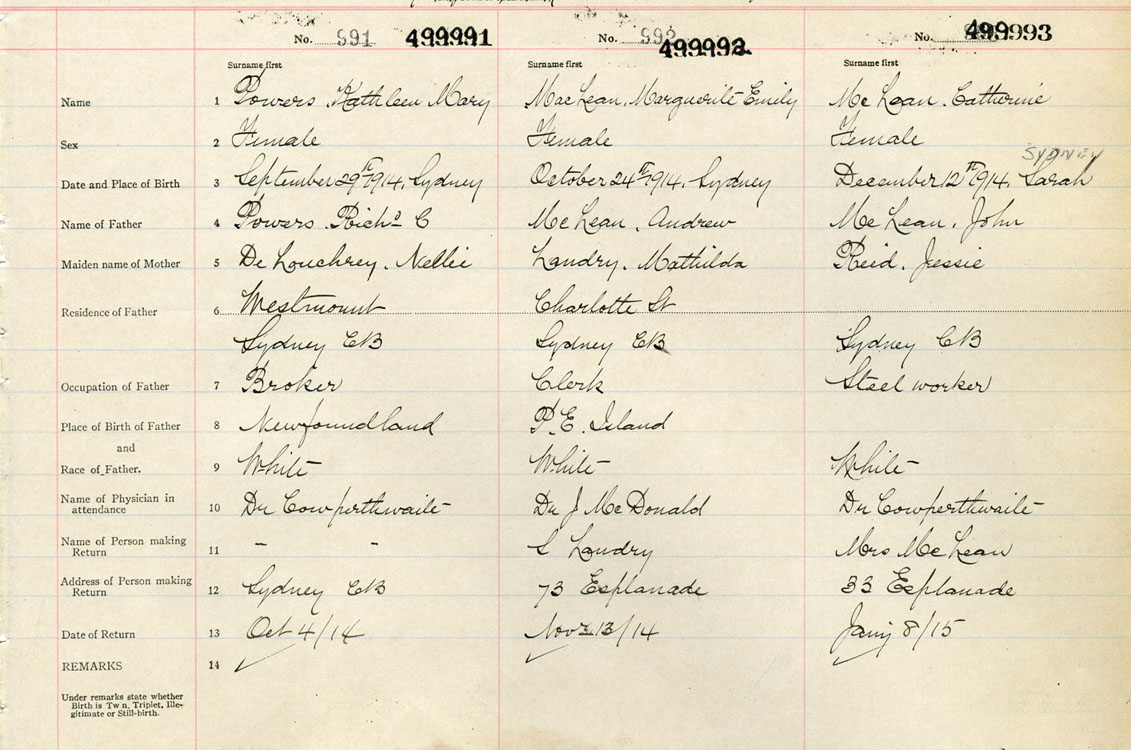 No. 991 499991 No. 992 499992. No. 499993
Surname first Surname first Surname first
Name 1 Powers, Kathleen Mary MacLean, Marguerite Emily McLean, Catherine
Sex 2 Female Female Female
SYDNEY
Date and Place of Birth 3 September 29th 1914, Sydney October 24th 1914, Sydney December 12th 1914, Sarah
Name of Father 4 Powers, Richd C McLean, Andrew McLean, John
Maiden name of Mother 5 De Louchrey, Nellie Landry, Mathilda Reid, Jessie
Residence of Father 6 Westmount Charlotte St
Sydney CB Sydney CB Sydney CB
Occupation of Father 7 Broker Clerk Steel worker
Place of Birth of Father 8 Newfoundland P.E. Island
and
Race of Father. 9 White White White
Name of Physician in
attendance 10 Dr Cowperthwaite Dr J McDonald Dr Cowperthwaite
Name of Person making
Return 11 - - S Landry Mrs McLean
Address of Person making
Return 12 Sydney CB 73 Esplanade 33 Esplanade
Date of Return 13 Oct 4/14 Nov 13/14 Jany 8/15
REMARKS 14
Under remarks state whether
Birth is Tw n, Triplet, Ille-
gitimate or Still-birth.